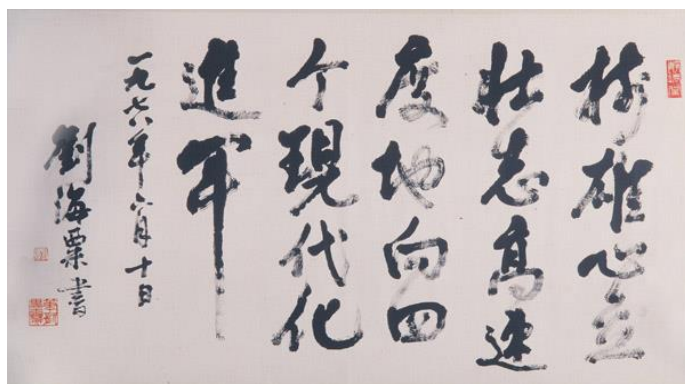 樹雄心立
壯志高速
度地向四
个現代化
進軍
一九七八年六月十日
劉海粟書